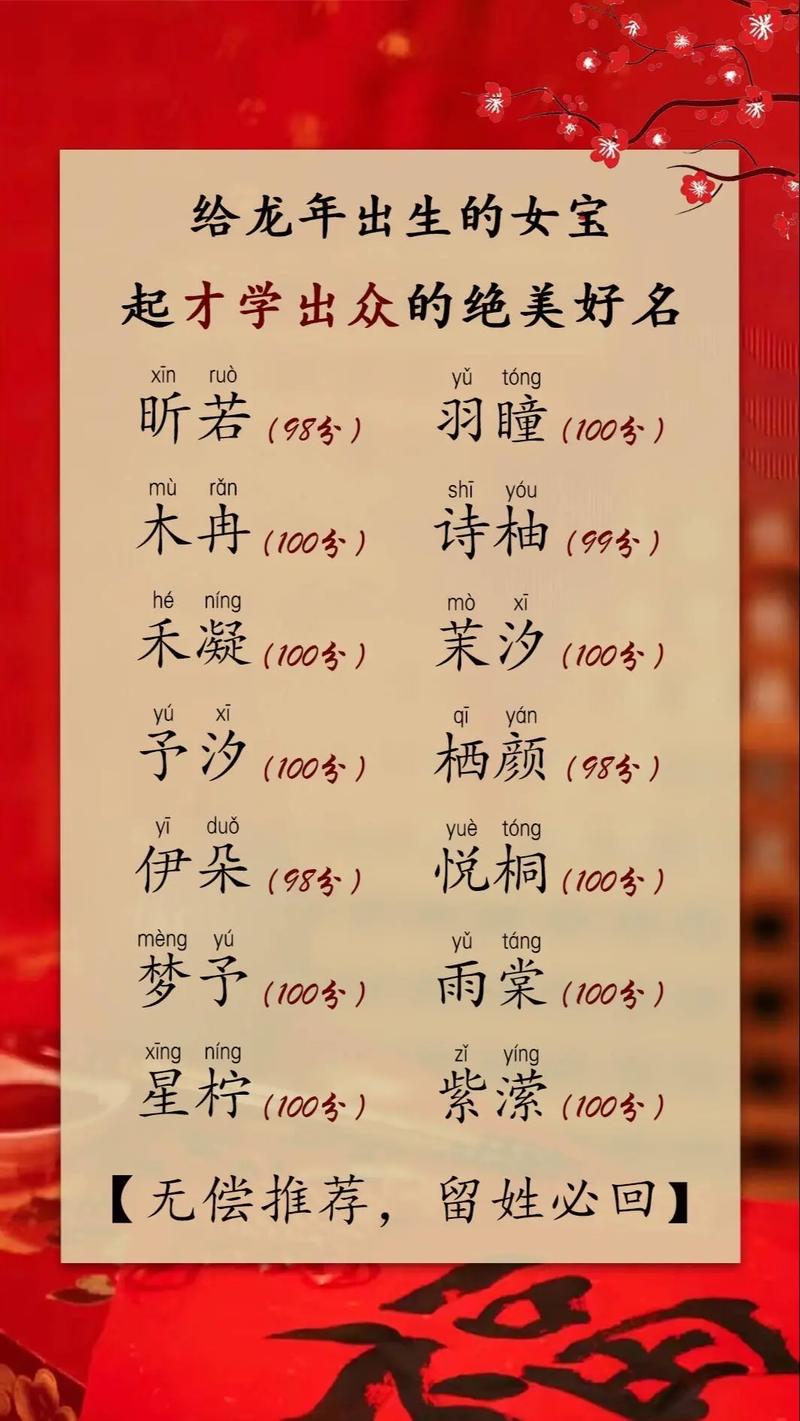 给龙年出生的女宝
起才学出众的绝美好名
xīn ruò yǔ tóng
昕若(98分) 羽瞳(100分)
mù rǎn shī yóu
木冉(100分) 诗柚(99分)
hé níng mò xī
禾凝(100分) 茉汐(100分)
yú xī qī yán
予汐(100分) 栖颜(98分)
yī duǒ yuè tóng
伊朵(98分) 悦桐(100分)
mèng yú yǔ táng
梦予(100分) 雨棠(100分)
xīng níng zǐ yíng
星柠(100分) 紫潆(100分)
【无偿推荐，留姓必回】
福